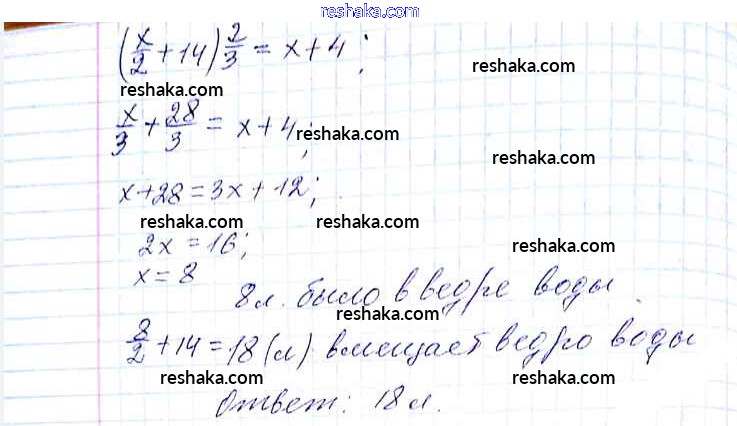 reshaka.com
(x/2 + 14) 2/3 = x + 4;
reshaka.com
reshaka.com
x/3 + 28/3 = x + 4;
reshaka.com
reshaka.com
x + 28 = 3x + 12;
reshaka.com
reshaka.com
2x = 16;
reshaka.com
x = 8
8 л. было в ведре воды
reshaka.com
8/2 + 14 = 18 (л) вмещает ведро воды
reshaka.com
reshaka.com
Ответ: 18 л.